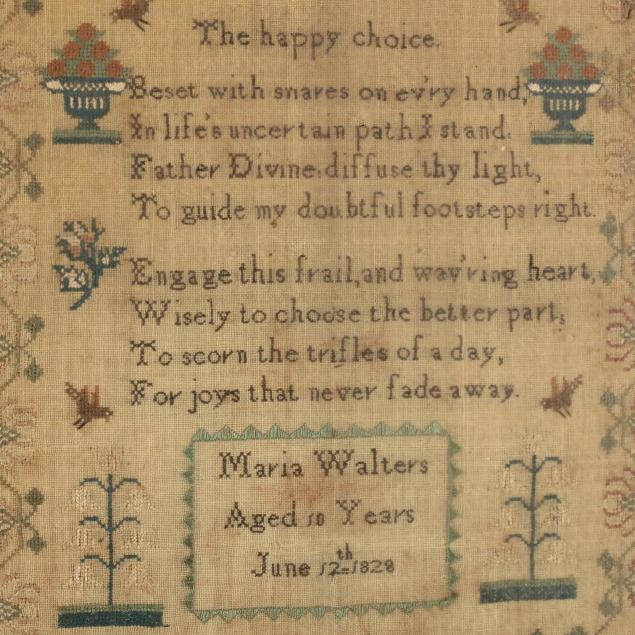 The happy choice.
Beset with snares on ev'ry hand,
In life's uncertain path I stand.
Father Divine, diffuse thy light,
To guide my doubtful footsteps right.
Engage this frail, and wav'ring heart,
Wisely to choose the better part,
To scorn the trifles of a day,
For joys that never fade away.
Maria Walters
Aged 10 Years
June 12th 1828